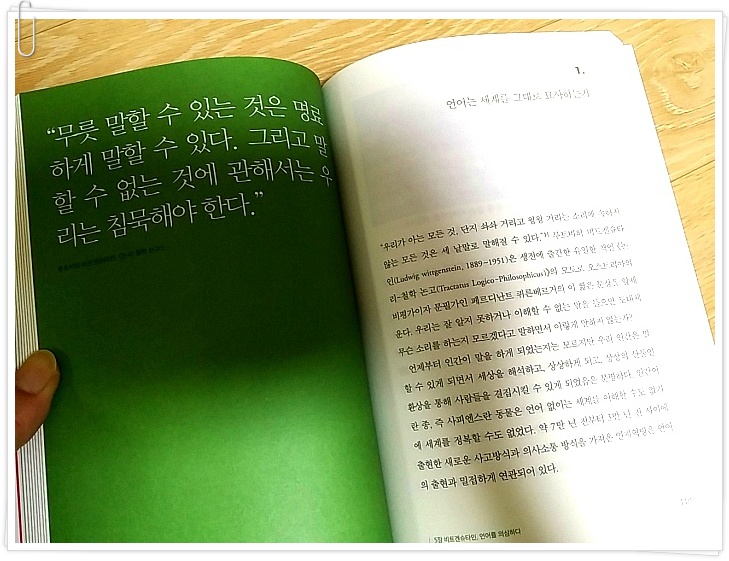 “무릇 말할 수 있는 것은 명료
하게 말할 수 있다. 그리고 말
할 수 없는 것에 관해서는 우
리는 침묵해야 한다.”
1.
언어는 세계를 그대로 묘사하는가
“우리가 아는 모든 것, 단지 솨솨 거리고 윙윙 거리는 소리에 속하지
않는 모든 것은 세 낱말로 말해질 수 있다.” 루트비히 비트겐슈타
인(Ludwig wittgenstein, 1889~1951)은 생전에 출간한 유일한 저서 《논
리-철학 논고(Tractatus Logico-Philosophicus)》의 모토로 오스트리아의
비평가이자 문필가인 페르디난트 퀴른베르거의 이 짧은 문장을 앞세
운다. 우리는 잘 알지 못하거나 이해할 수 없는 말을 들으면 도대체
무슨 소리를 하는지 모르겠다고 말하면서 이렇게 말하지 않는가?
언제부터 인간이 말을 하게 되었는지는 모르지만 우리 인간은 말
할 수 있게 되면서 세상을 해석하고, 상상하게 되고, 상상의 산물인
환상을 통해 사람들을 결집시킬 수 있게 되었음은 분명하다. 인간이
란 종, 즉 사피엔스란 동물은 언어 없이는 세계를 이해할 수도 없거니
에 세계를 정복할 수도 없었다. 약 7만 년 전부터 3만 년 전 사이에
출현한 새로운 사고방식과 의사소통 방식을 가져온 인지혁명은 언어
의 출현과 밀접하게 연관되어 있다.
5장 비트겐슈타인, 언어를 의심하다